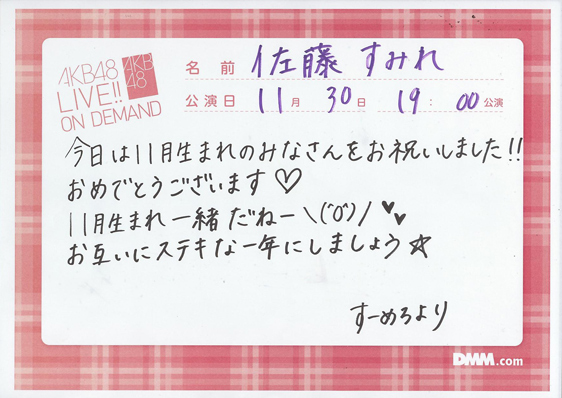 AKB48
LIVE!!
ON DEMAND
AKB
48
名前 佐藤 すみれ
公演日 11月 30日 19:00公演
今日は11月生まれのみなさんをお祝いしました!!
おめでとうございます♡
11月生まれ一緒だねー\(´0`)/♥♥
お互いにステキな一年にしましょう☆
すーめろより
DMM.com